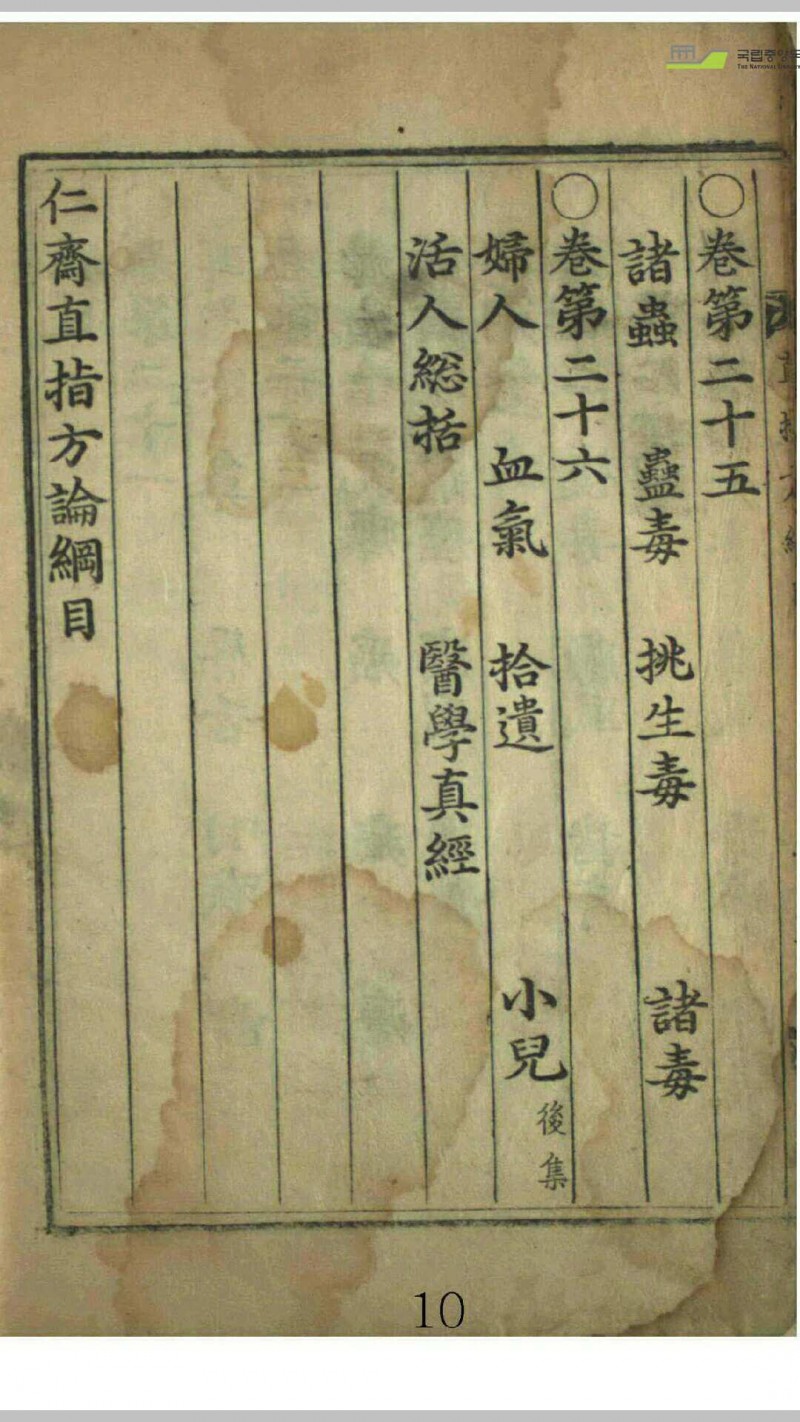 ○卷第二十五
諸蟲 蠱毒 挑生毒 諸毒
○卷第二十六
婦人 血氣 拾遺 小兒 後集
活人総括 醫學真經
仁齋直指方論綱目
10